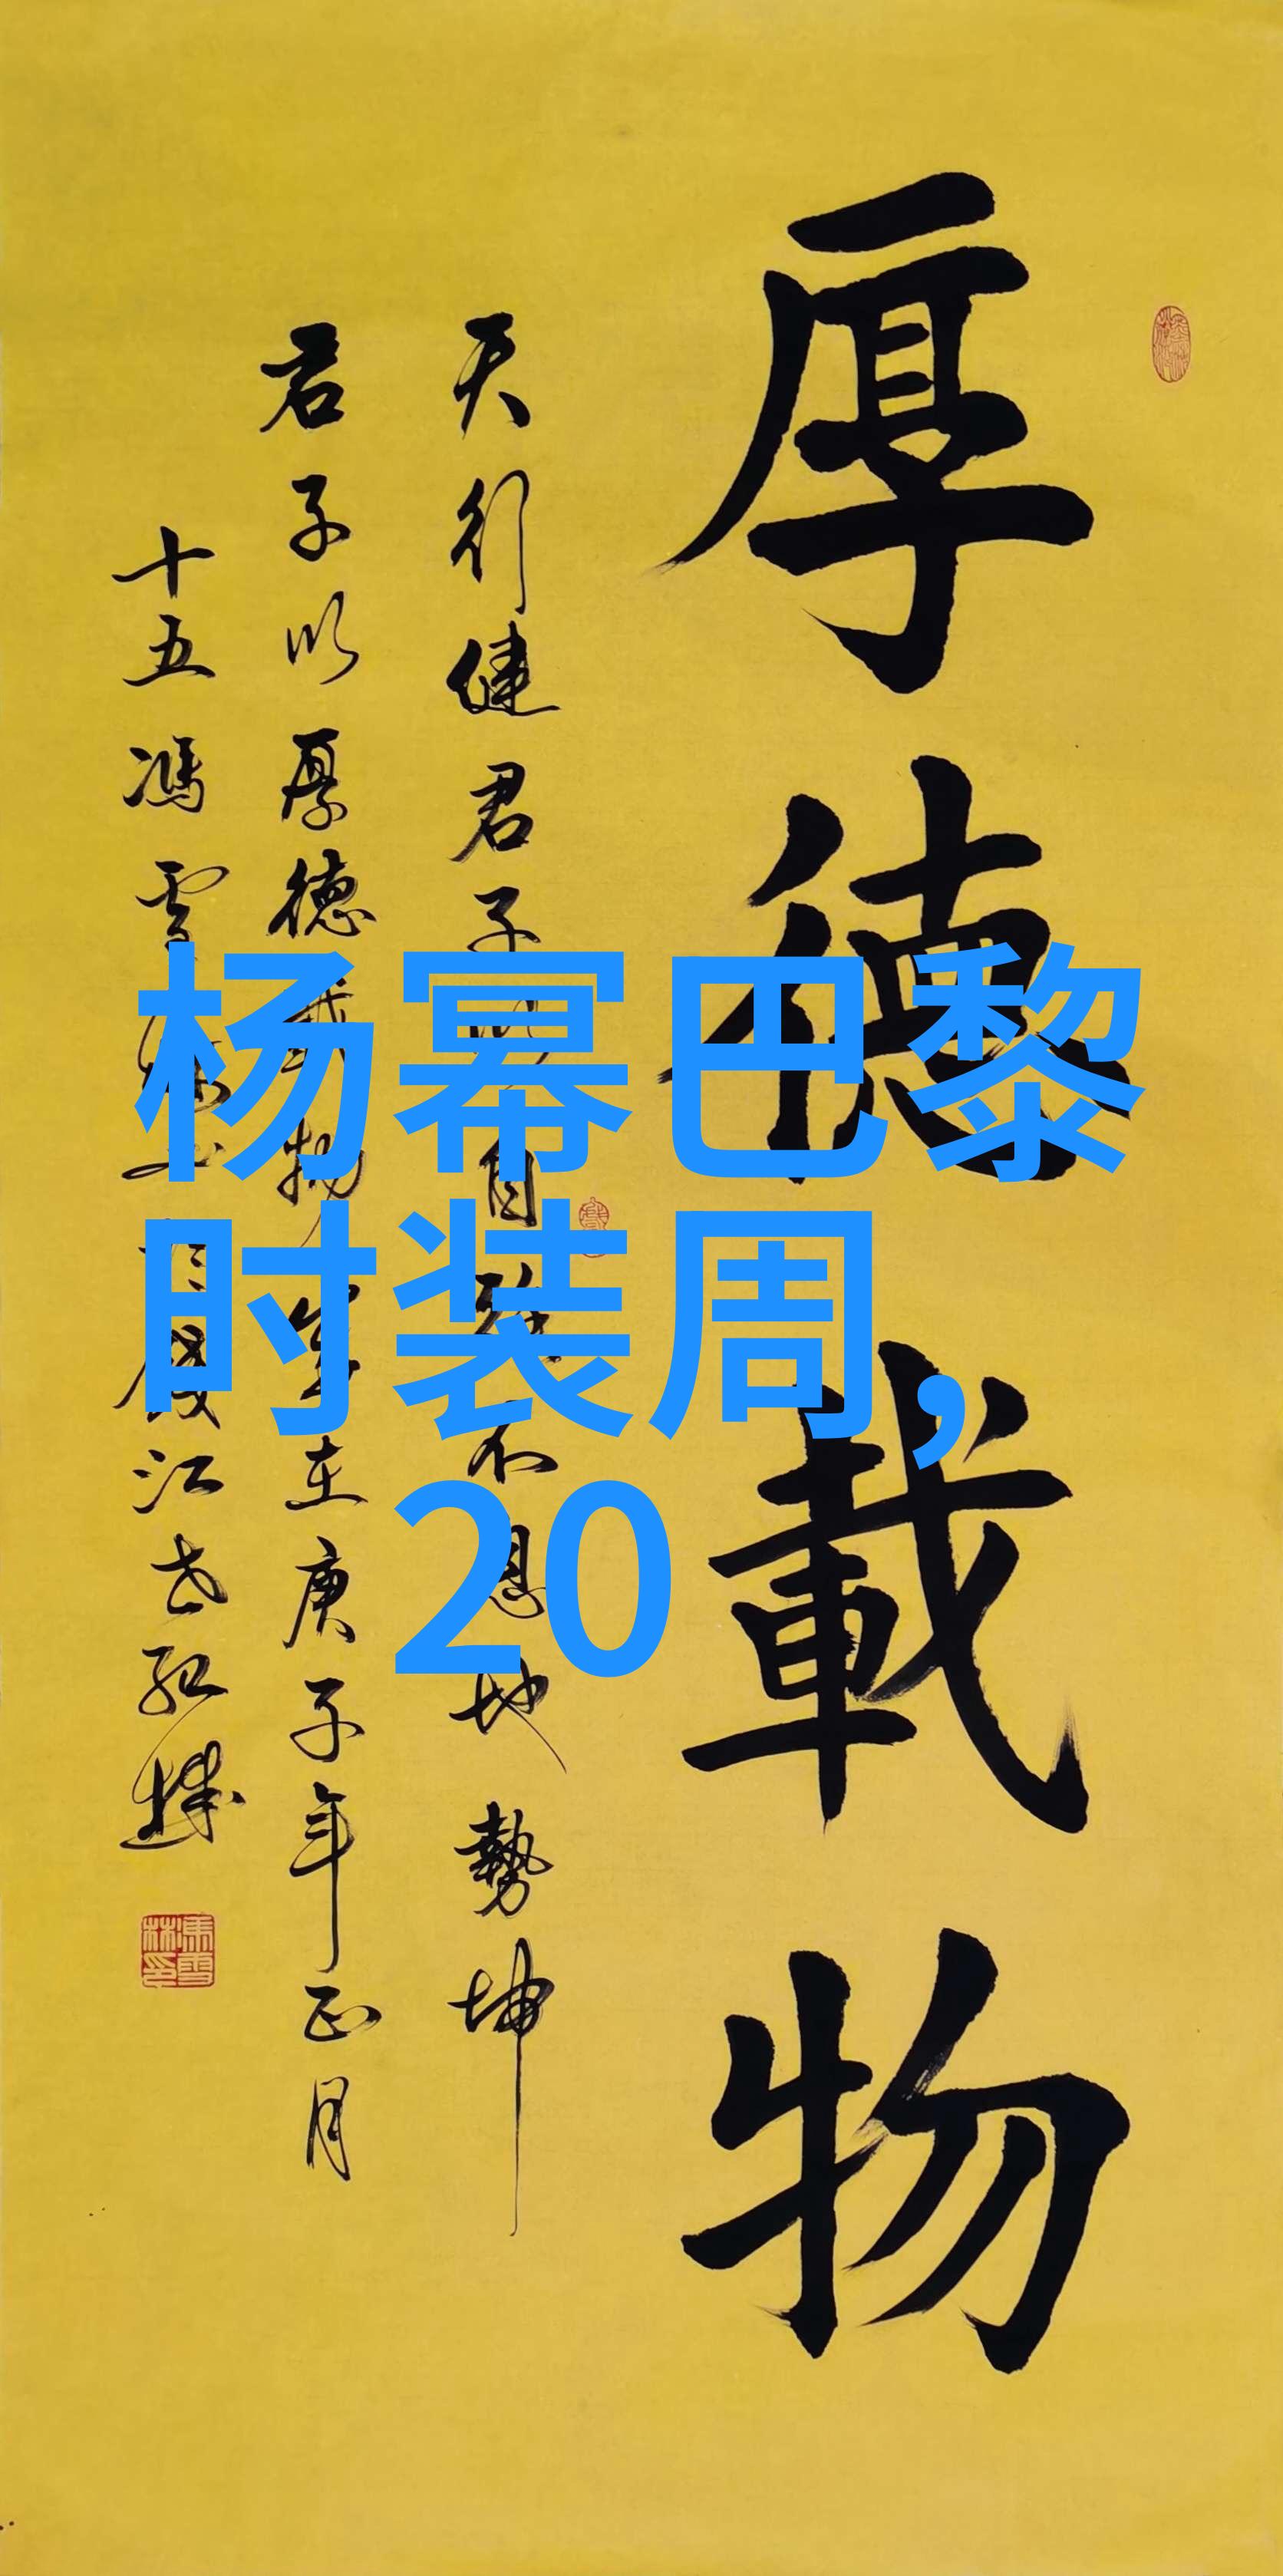 厚德載物
天行健君子以自强不息地勢坤
君子以厚德載物岁在庚子年正月
十五馮雪林
江
杨幂巴黎
时装周,
20